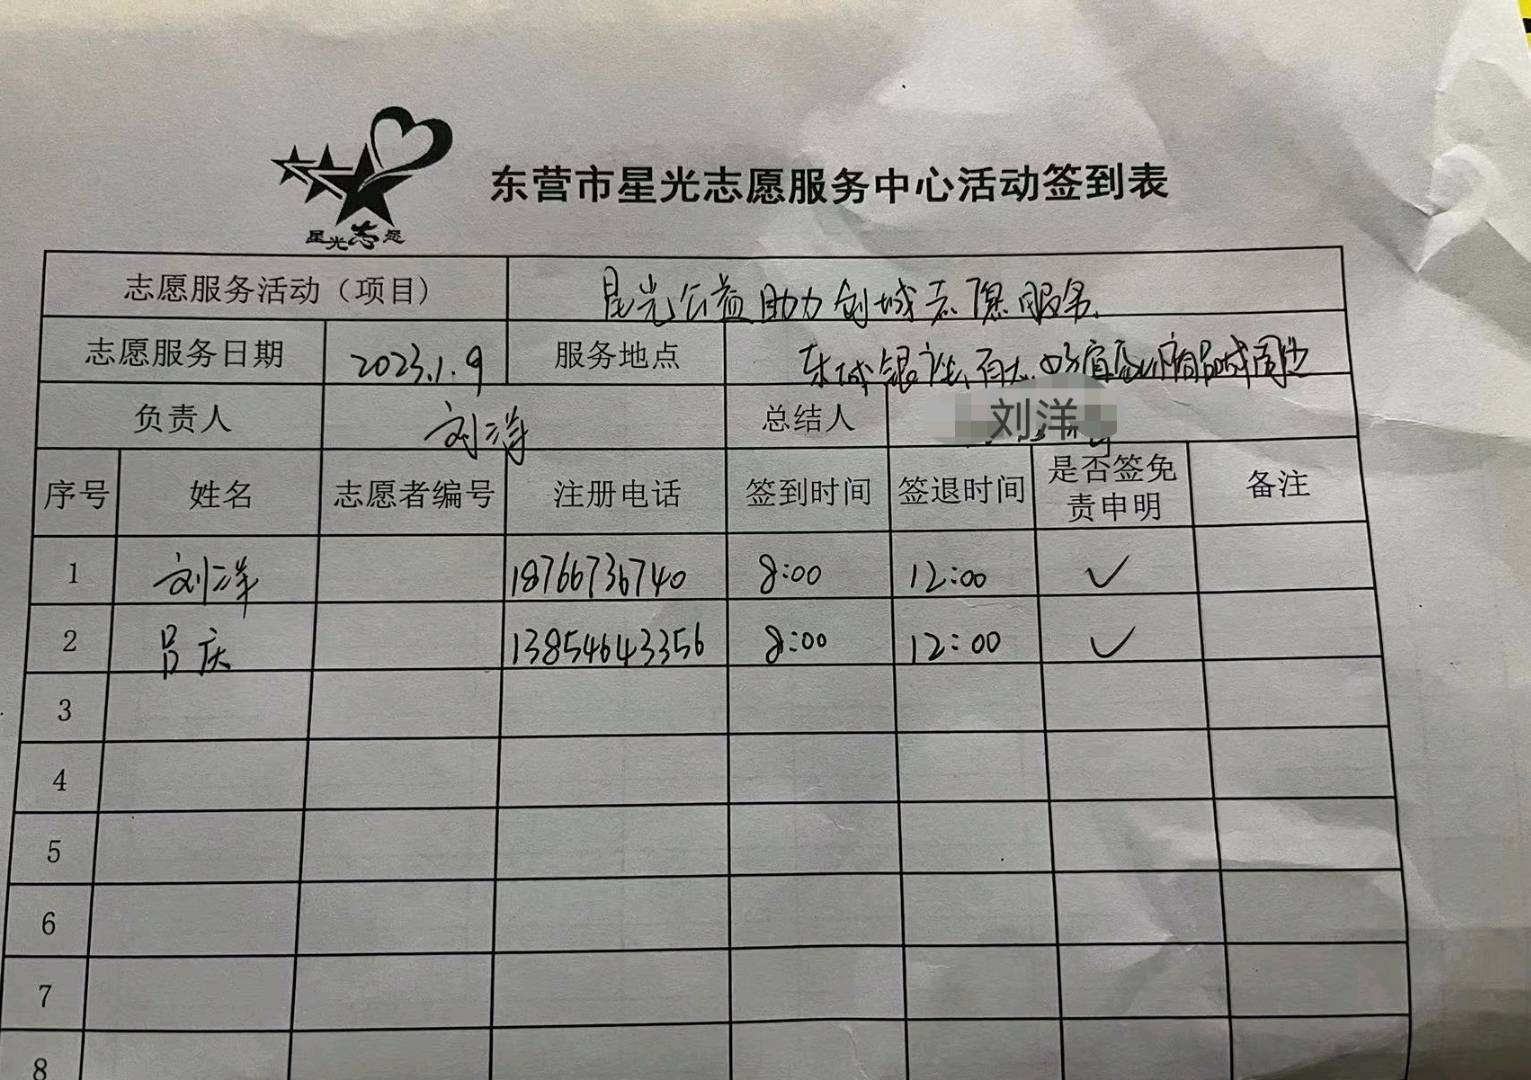 星光志愿
东营市星光志愿服务中心活动签到表
志愿服务活动（项目） 星光公益助力创城志愿服务
志愿服务日期 2023.1.9 服务地点 东城银座、百大、
负责人 刘洋 总结人 刘洋
序号 姓名 志愿者编号 注册电话 签到时间 签退时间 是否签免责申明 备注
1 刘洋 18766736740 8:00 12:00 ✓
2 吕庆 13854643356 8:00 12:00 ✓
3
4
5
6
7
8